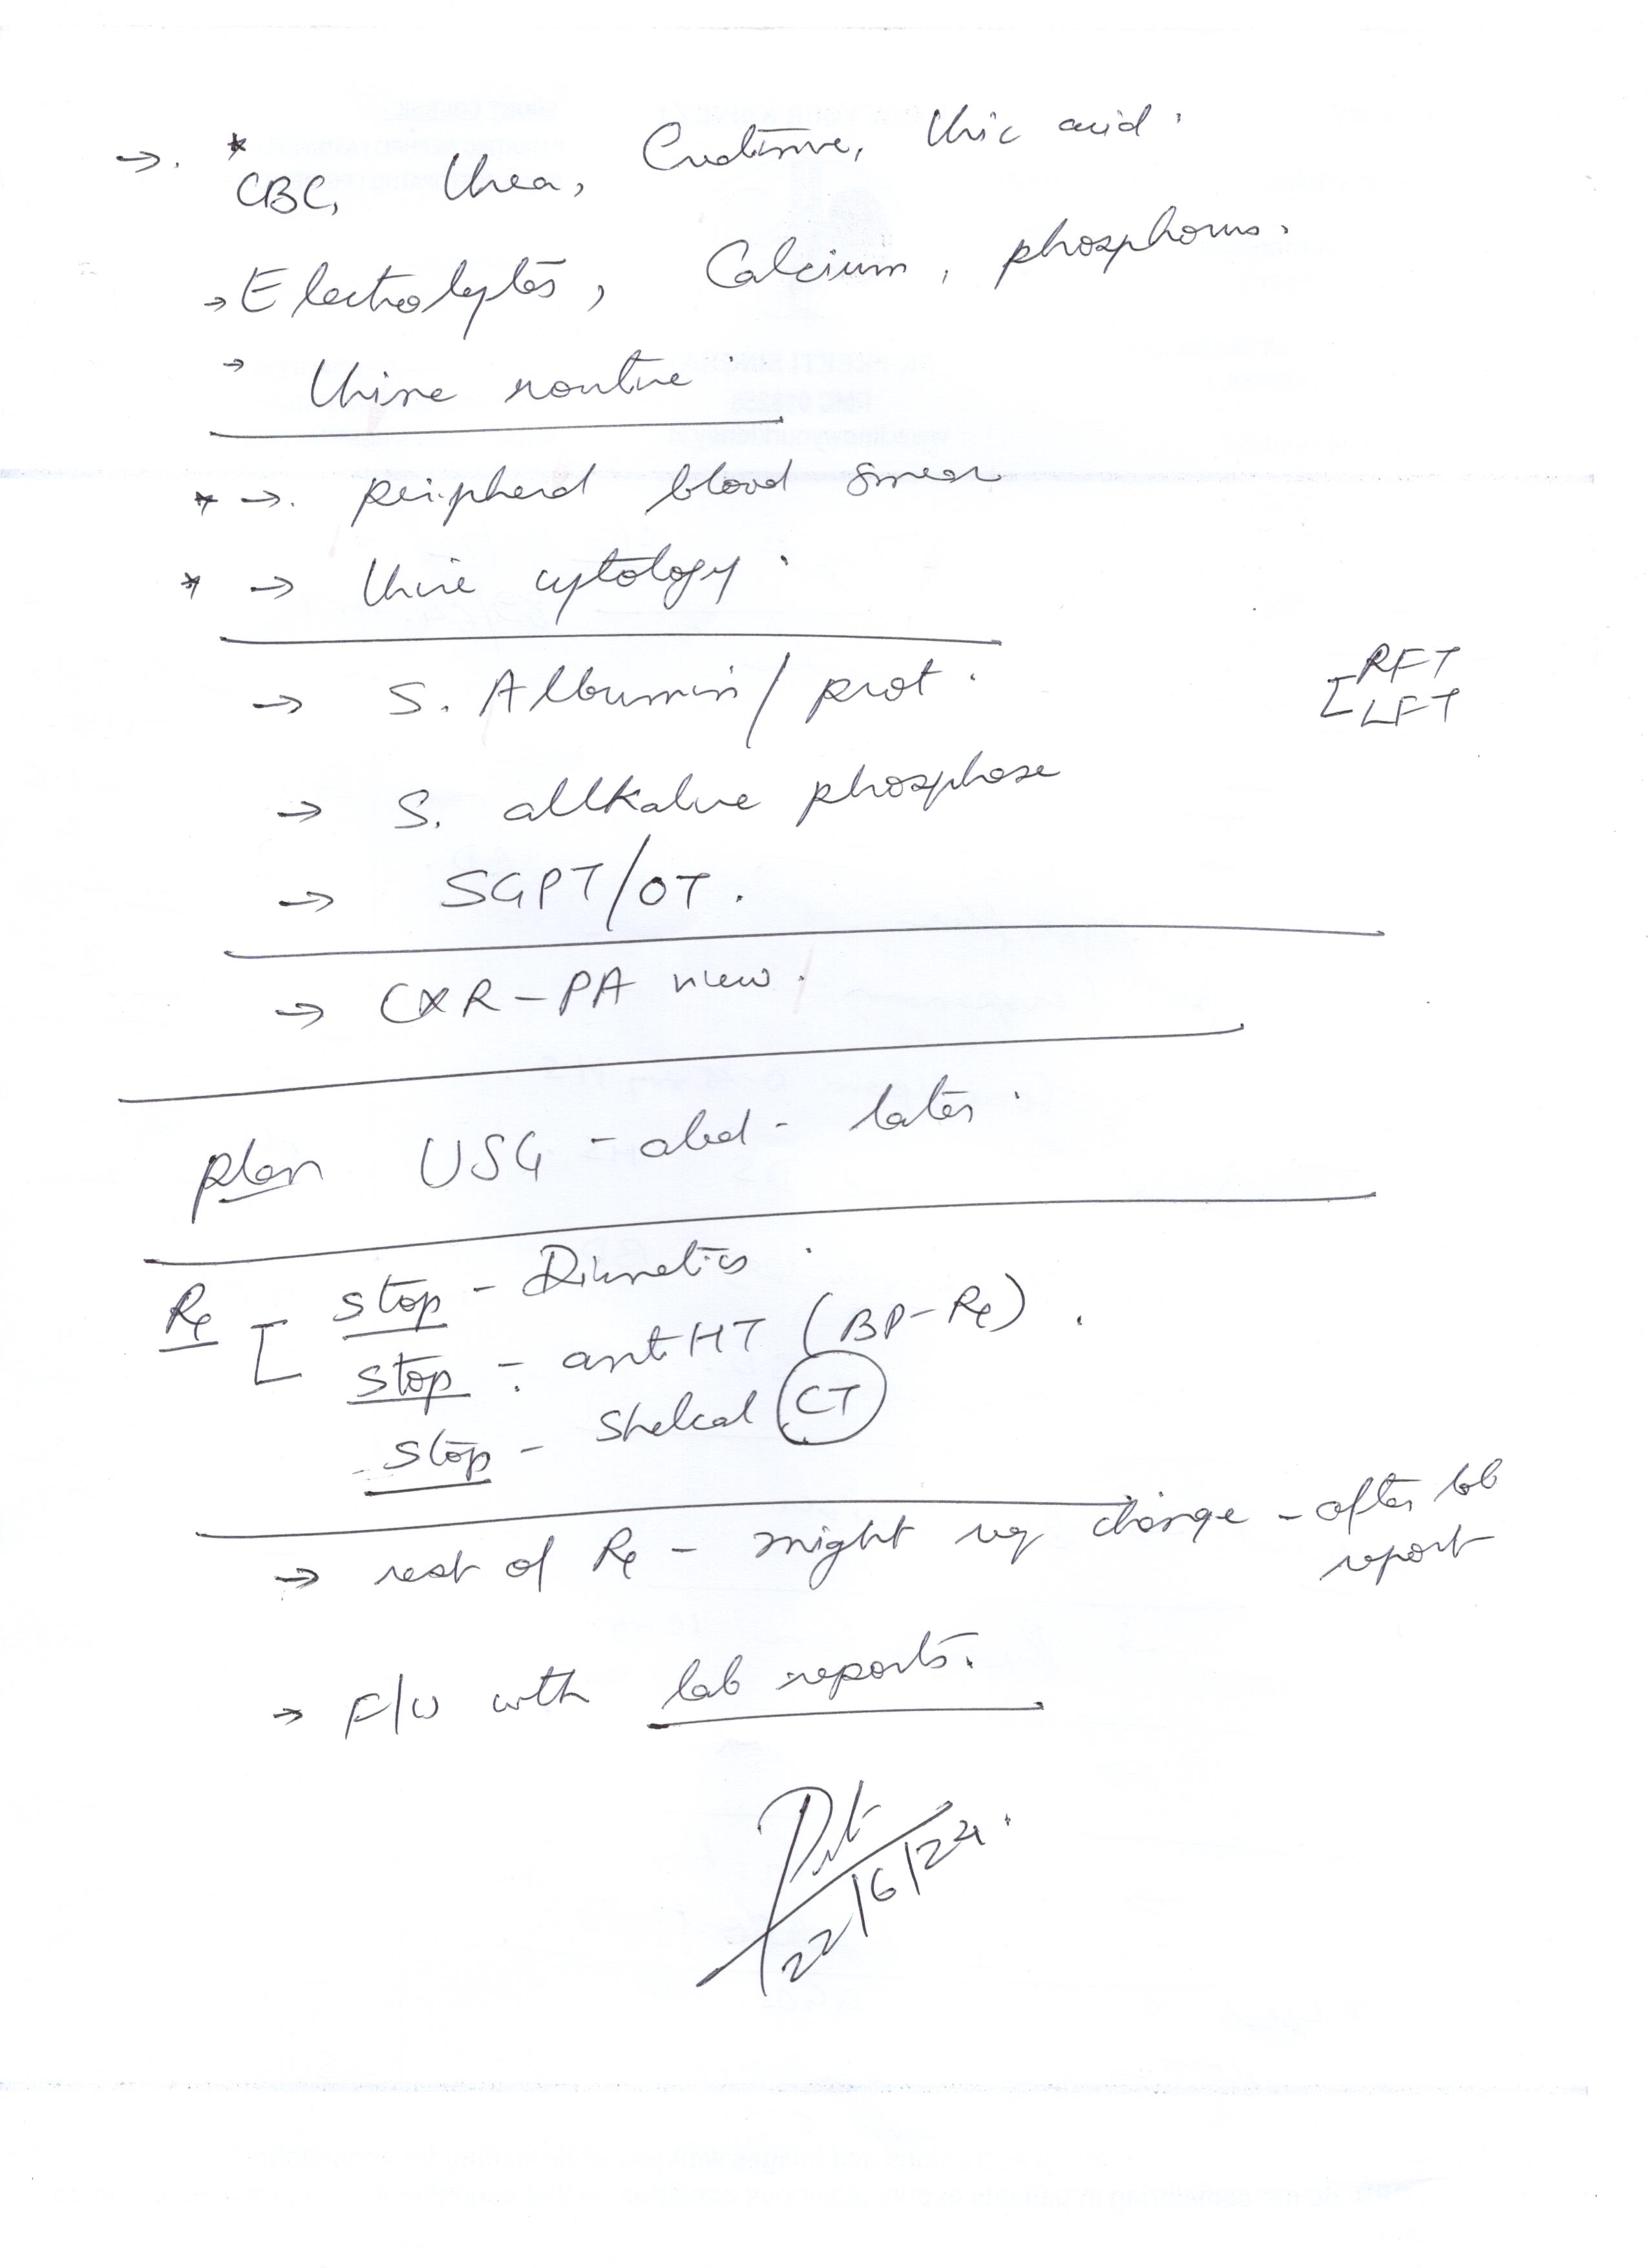 →. * CBC, Urea, Creatinine, Uric acid.
→ Electrolytes, Calcium, phosphorus.
→ Urine routine
* →. peripheral blood smear
* → Urine cytology.
→ S. Albumin/prot.
[RFT
LFT
→ S. allkaline phosphase
→ SGPT/OT.
→ CXR-PA view.
plan USG-abd- later.
Rx [ stop - Diuretics.
stop - antiHT (BP-Rx).
stop - Shelcal CT
→ rest of Rx - might req change - after lab
report
→ F/U with lab reports.
22/6/24.